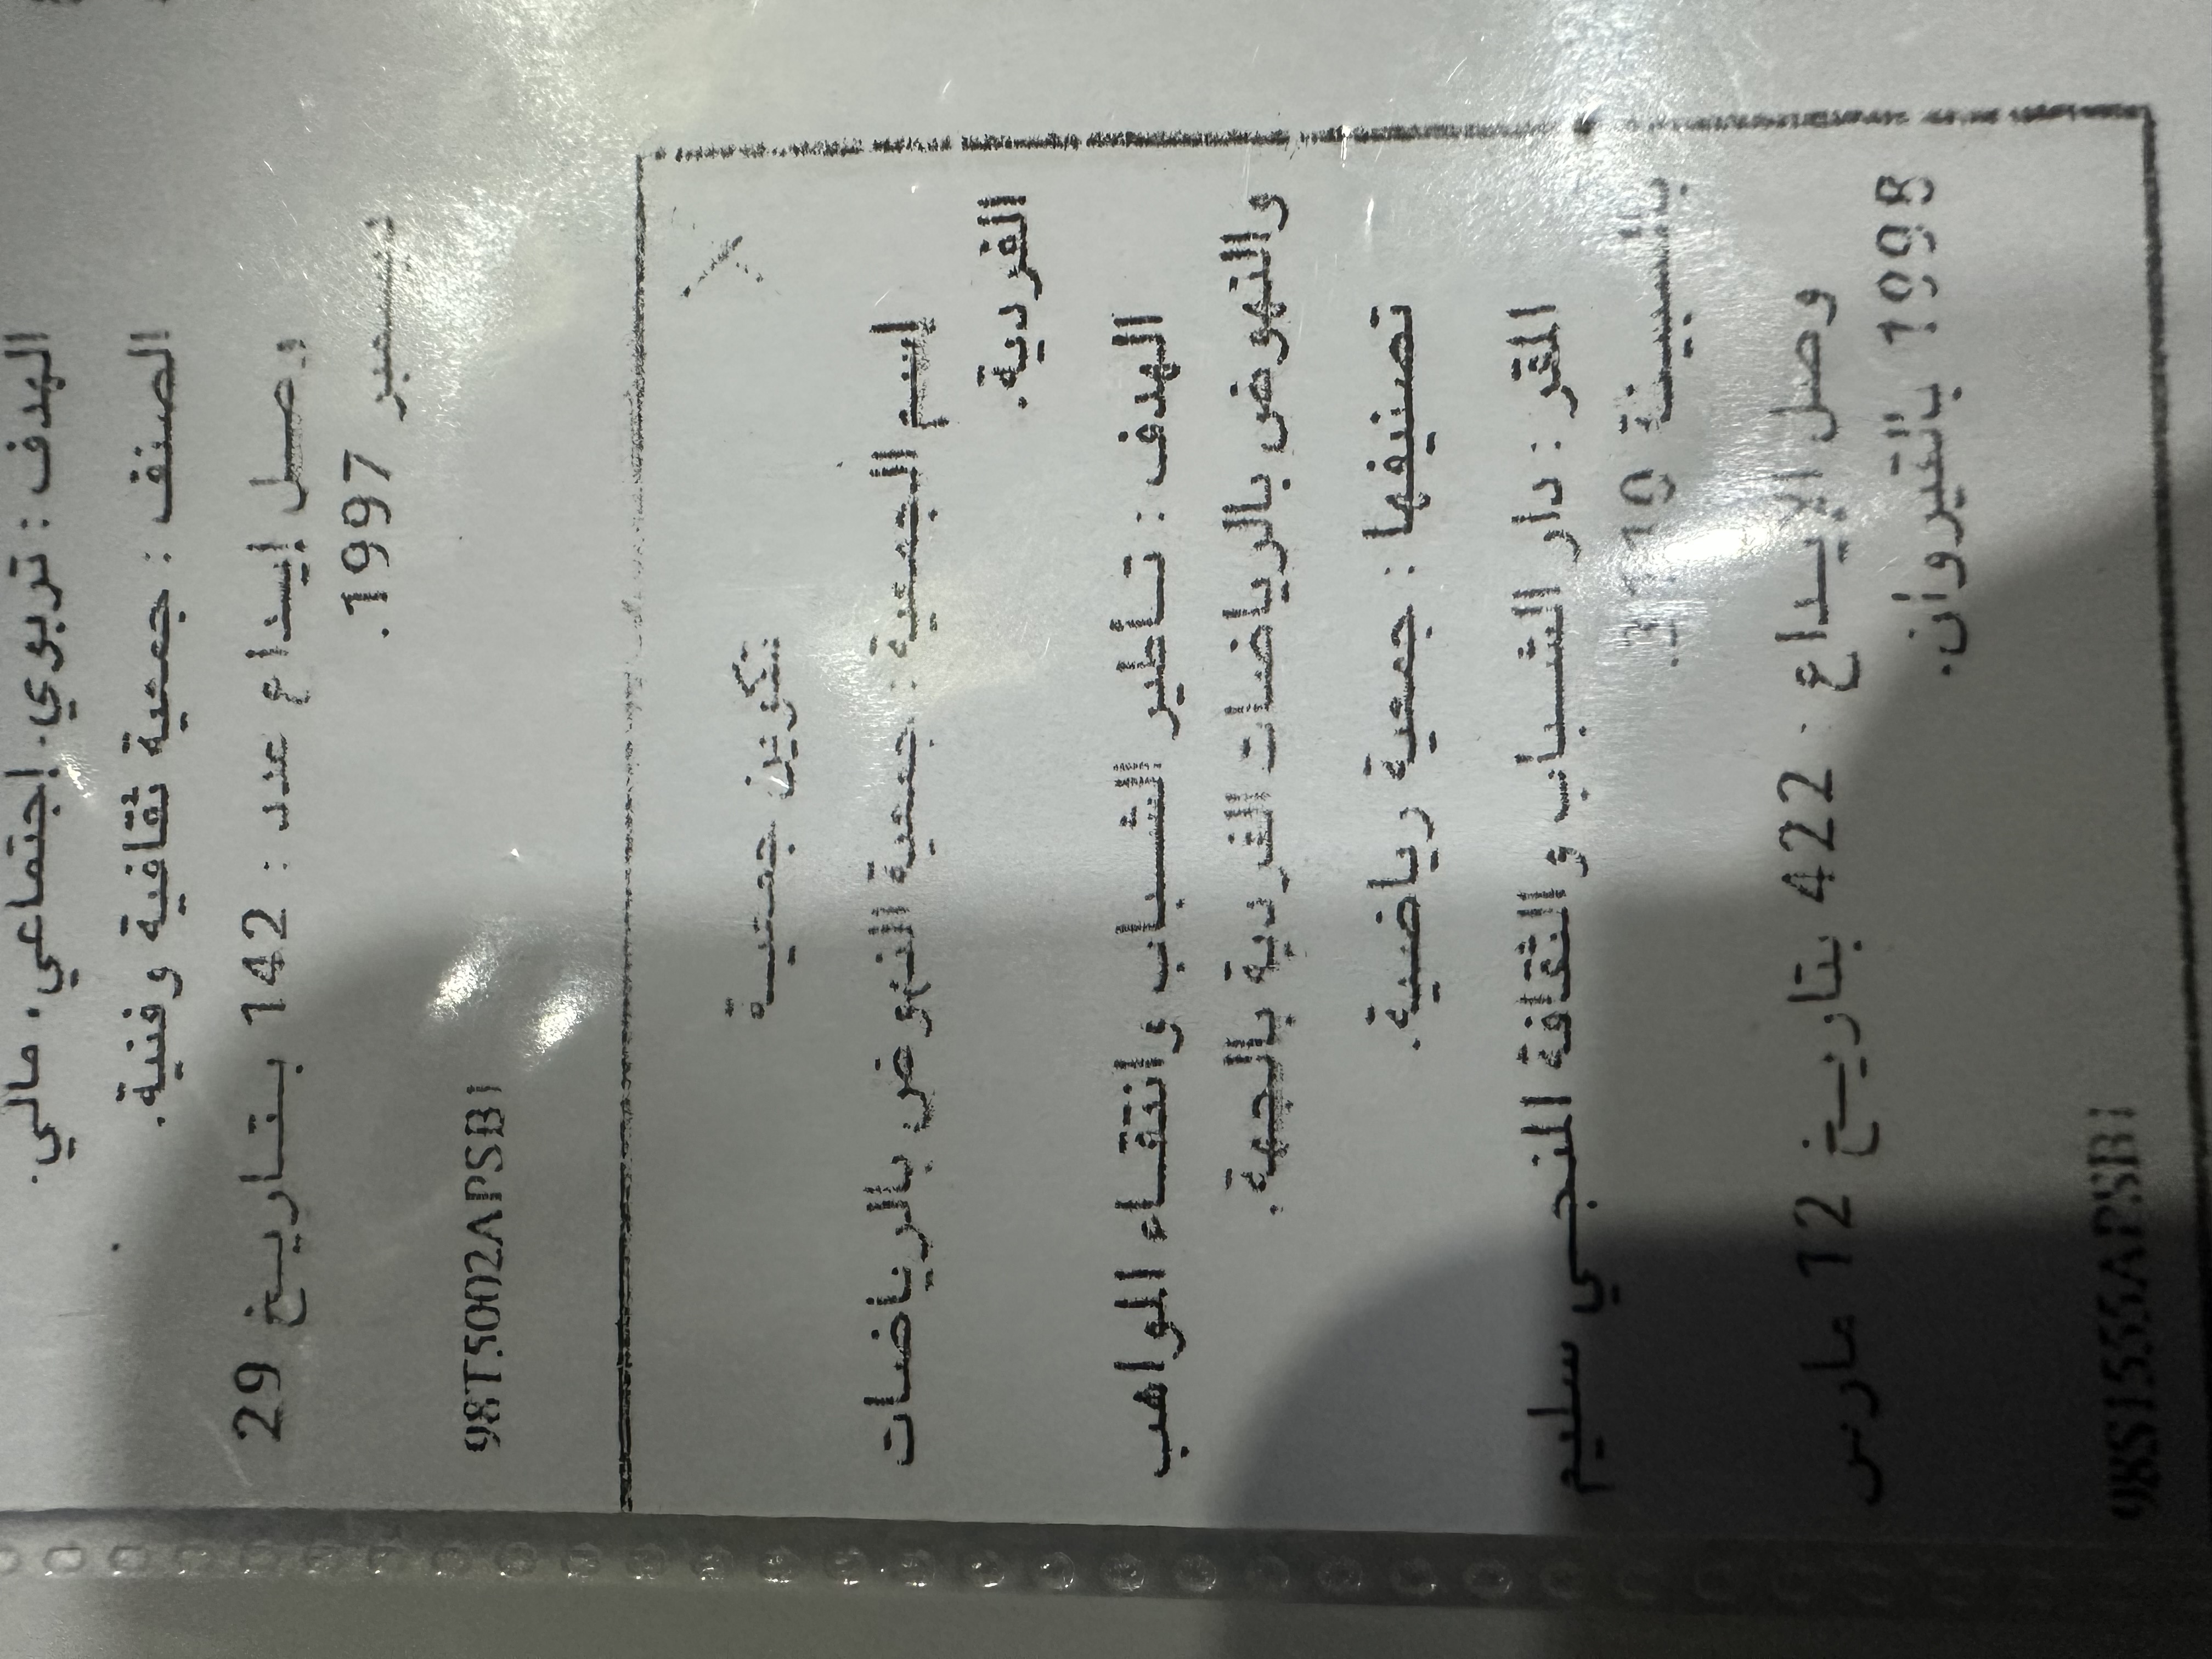 الهدف : تربوي. إجتماعي. مالي.
الصنف : جمعية ثقافية وفنية.
وصل إيداع عدد : 142 بتاريخ 29
ديسمبر 1997.
98T5002APSB1
تكوين جمعية
إسم الجمعية : جمعية النهوض بالرياضات
الفردية.
الهدف : تأطير الشباب وانتقاء المواهب
والنهوض بالرياضات الفردية بالجهة.
تصنيفها : جمعية رياضية.
المقر : دار الشباب والثقافة المنجي سليم
وصل الإيداع : 422 بتاريخ 12 مارس
1998 بالقيروان.
98S1555APSB1